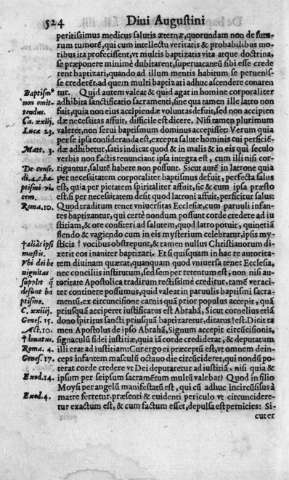 524 Diui Augustini
peritissimus medicus salutis æternæ, quorundam non de futurum
rum tumorē, qui cum intellectu veritatis & probabilibus moribus
ita proficiscētur, vt multis baptizatis vita atque doctrina,
se præponere minimè dubitarent, superuacaneū sibi esse crederent
rent baptizari, quando ad illum mentis habitum se peruenisse
crederēt, ad quem multi baptizati adhuc ascendere conarentur.
Baptism°
non omittendum.
tur. Quid autem valeat & quid agat in homine corporaliter
adhibita sanctificatio sacramēti, sine qua ramen ille latro non
C. xxiij.
fuit, quia non eius accipiendæ voluntas defuit, sed non accipiendæ
dæ necessitas affuit, difficile est dicere. Nisi tamen plurimum
Luca 23.
valeret, non serui baptismum dominus accepisset. Verum quia
per se ipsa consideranda est, excepta salute hominis cui perficiendæ
Mat. 3.
dæ adhibetur, satis indicat quod & in malis & in eis qui seculo
verbis non factis renunciant ipsa integra est, cum illi nisi corrigantur,
saluti habere non possunt. Sicut autē in latrone quia
per necessitatem corporaliter baptismus defuit, perfecta salus
est, quia per pietatem spiritaliter affuit, sic & cum ipsa præsto
est, si per necessitatem desit quod latroni affuit, perficitur salus:
Roma. 10.
Quod traditum tenet vniuersitas Ecclesiæ, cum paruuli infantes
baptizantur, qui certè nondum possunt corde credere ad iustitiam,
& ore confiteri ad salutem, quod latro potuit, quinetiā
flendo & vagiendo cum in eis mysterium celebratur, ipsis mysticis
† vocibus obstrepunt, & tamen nullus Christianorum dixerit
eos inaniter baptizari. Et si quisquam in hac re autoritatem
diuinam quærat, quanquam quod vniuersa tenet Ecclesia
nec conciliis institutum, sed semper retentum est, non nisi autoritate
Apostolica traditum rectissimè creditur, tamē veraciter
coniicere possumus, quid valeat in paruulis baptismi sacramentū,
ex circuncisione carnis quā prior populus accepit, quā
C. xxiiij.
priusquā acciperet iustificatus est Abrahā. Sicut cornelius etiā
Genes. 15.
dono spiritus sancti priusquā baptizaretur, ditatus est. Dicit tamen
Act. 10.
Apostolus de ipso Abrahā, Signum accepit circuncisionis,
signaculū fidei iustitiæ, quia iā corde crediderat, & deputatum
Roma. 4.
illi erat ad iustitiam. Cur ergo ei præceptū est, vt omnem deinceps
Genes. 17.
infantem masculū octauo die circuncideret, qui nondū poterat
corde credere vt Dei deputaretur ad iustitiā, nisi quia &
Exod. 24.
ipsum per seipsum sacramētum multū valebat? Quod in filio
Moysi per angelū manifestatū est, qui cū adhuc incircuncisus à
Exod. 4.
matre ferretur præsenti & euidenti periculo vt circuncideretur
exactum est, & cum factum esset, depulsa est pernicies: Si-
cuter